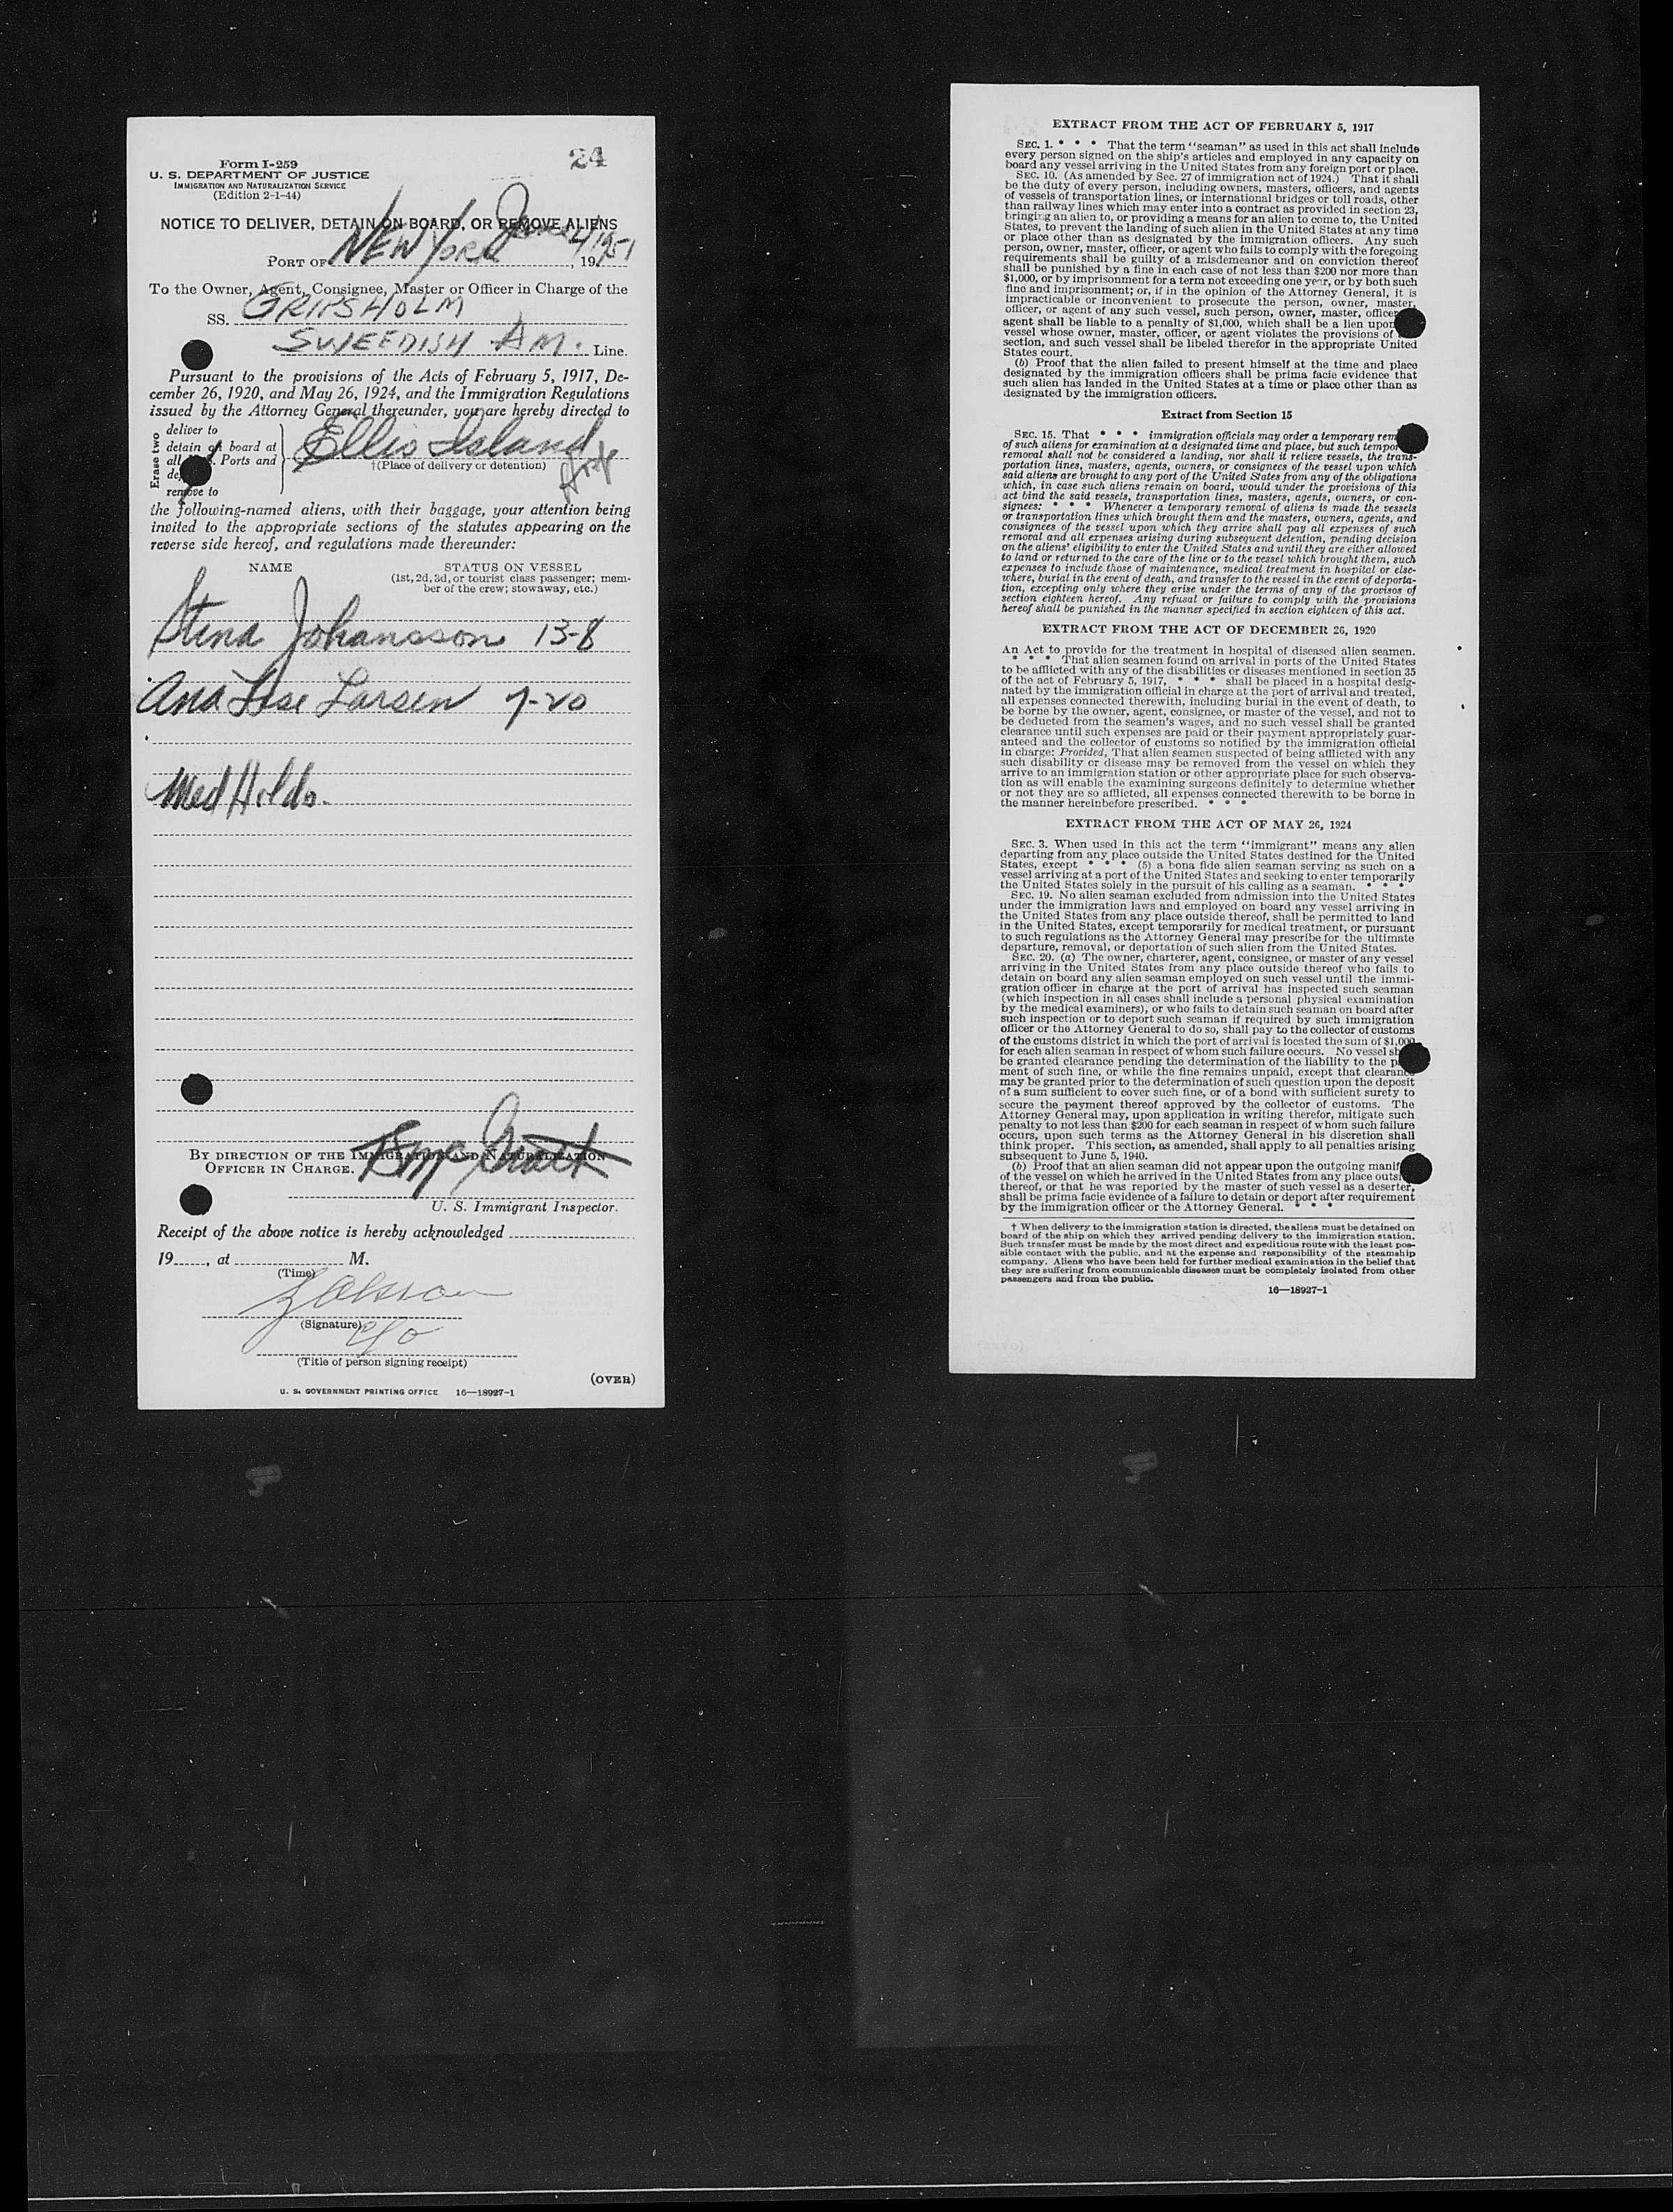 24
Form I-259
U. S. DEPARTMENT OF JUSTICE
IMMIGRATION AND NATURALIZATION SERVICE
(Edition 2-1-44)
NOTICE TO DELIVER, DETAIN ON BOARD, OR REMOVE ALIENS
PORT OF NEW YORK June 4, 1951
To the Owner, Agent, Consignee, Master or Officer in Charge of the
SS. GRIPSHOLM
SWEEDISH AM. Line.
Pursuant to the provisions of the Acts of February 5, 1917, De-
cember 26, 1920, and May 26, 1924, and the Immigration Regulations
issued by the Attorney General thereunder, you are hereby directed to
Erase two
deliver to
detain on board at
all Ports and
remove to
Ellis Island
†(Place of delivery or detention)
the following-named aliens, with their baggage, your attention being
invited to the appropriate sections of the statutes appearing on the
reverse side hereof, and regulations made thereunder:
NAME STATUS ON VESSEL
(1st, 2d, 3d, or tourist class passenger; mem-
ber of the crew; stowaway, etc.)
Stina Johansson 13-8
Ana Lise Larsen 7-20
Med Holds.
BY DIRECTION OF THE IMMIGRATION AND NATURALIZATION
OFFICER IN CHARGE.
U. S. Immigrant Inspector.
Receipt of the above notice is hereby acknowledged
19, at M.
(Time)
(Signature)
c/o
(Title of person signing receipt)
(OVER)
U. S. GOVERNMENT PRINTING OFFICE 16—18927-1
EXTRACT FROM THE ACT OF FEBRUARY 5, 1917
SEC. 1. * * * That the term "seaman" as used in this act shall include
every person signed on the ship's articles and employed in any capacity on
board any vessel arriving in the United States from any foreign port or place.
SEC. 10. (As amended by Sec. 27 of immigration act of 1924.) That it shall
be the duty of every person, including owners, masters, officers, and agents
of vessels of transportation lines, or international bridges or toll roads, other
than railway lines which may enter into a contract as provided in section 23,
bringing an alien to, or providing a means for an alien to come to, the United
States, to prevent the landing of such alien in the United States at any time
or place other than as designated by the immigration officers. Any such
person, owner, master, officer, or agent who fails to comply with the foregoing
requirements shall be guilty of a misdemeanor and on conviction thereof
shall be punished by a fine in each case of not less than $200 nor more than
$1,000, or by imprisonment for a term not exceeding one year, or by both such
fine and imprisonment; or, if in the opinion of the Attorney General, it is
impracticable or inconvenient to prosecute the person, owner, master,
officer, or agent of any such vessel, such person, owner, master, officer
agent shall be liable to a penalty of $1,000, which shall be a lien upon
vessel whose owner, master, officer, or agent violates the provisions of
section, and such vessel shall be libeled therefor in the appropriate United
States court.
(b) Proof that the alien failed to present himself at the time and place
designated by the immigration officers shall be prima facie evidence that
such alien has landed in the United States at a time or place other than as
designated by the immigration officers.
Extract from Section 15
SEC. 15. That * * * immigration officials may order a temporary rem
of such aliens for examination at a designated time and place, but such tempor
removal shall not be considered a landing, nor shall it relieve vessels, the trans-
portation lines, masters, agents, owners, or consignees of the vessel upon which
said aliens are brought to any port of the United States from any of the obligations
which, in case such aliens remain on board, would under the provisions of this
act bind the said vessels, transportation lines, masters, agents, owners, or con-
signees: * * * Whenever a temporary removal of aliens is made the vessels
or transportation lines which brought them and the masters, owners, agents, and
consignees of the vessel upon which they arrive shall pay all expenses of such
removal and all expenses arising during subsequent detention, pending decision
on the aliens' eligibility to enter the United States and until they are either allowed
to land or returned to the care of the line or to the vessel which brought them, such
expenses to include those of maintenance, medical treatment in hospital or else-
where, burial in the event of death, and transfer to the vessel in the event of deporta-
tion, excepting only where they arise under the terms of any of the provisos of
section eighteen hereof. Any refusal or failure to comply with the provisions
hereof shall be punished in the manner specified in section eighteen of this act.
EXTRACT FROM THE ACT OF DECEMBER 26, 1920
An Act to provide for the treatment in hospital of diseased alien seamen.
* * * That alien seamen found on arrival in ports of the United States
to be afflicted with any of the disabilities or diseases mentioned in section 35
of the act of February 5, 1917, * * * shall be placed in a hospital desig-
nated by the immigration official in charge at the port of arrival and treated,
all expenses connected therewith, including burial in the event of death, to
be borne by the owner, agent, consignee, or master of the vessel, and not to
be deducted from the seamen's wages, and no such vessel shall be granted
clearance until such expenses are paid or their payment appropriately guar-
anteed and the collector of customs so notified by the immigration official
in charge: Provided, That alien seamen suspected of being afflicted with any
such disability or disease may be removed from the vessel on which they
arrive to an immigration station or other appropriate place for such observa-
tion as will enable the examining surgeons definitely to determine whether
or not they are so afflicted, all expenses connected therewith to be borne in
the manner hereinbefore prescribed. * * *
EXTRACT FROM THE ACT OF MAY 26, 1924
SEC. 3. When used in this act the term "immigrant" means any alien
departing from any place outside the United States destined for the United
States, except * * * (5) a bona fide alien seaman serving as such on a
vessel arriving at a port of the United States and seeking to enter temporarily
the United States solely in the pursuit of his calling as a seaman. * * *
SEC. 19. No alien seaman excluded from admission into the United States
under the immigration laws and employed on board any vessel arriving in
the United States from any place outside thereof, shall be permitted to land
in the United States, except temporarily for medical treatment, or pursuant
to such regulations as the Attorney General may prescribe for the ultimate
departure, removal, or deportation of such alien from the United States.
SEC. 20. (a) The owner, charterer, agent, consignee, or master of any vessel
arriving in the United States from any place outside thereof who fails to
detain on board any alien seaman employed on such vessel until the immi-
gration officer in charge at the port of arrival has inspected such seaman
(which inspection in all cases shall include a personal physical examination
by the medical examiners), or who fails to detain such seaman on board after
such inspection or to deport such seaman if required by such immigration
officer or the Attorney General to do so, shall pay to the collector of customs
of the customs district in which the port of arrival is located the sum of $1,000
for each alien seaman in respect of whom such failure occurs. No vessel sh
be granted clearance pending the determination of the liability to the p
ment of such fine, or while the fine remains unpaid, except that clearance
may be granted prior to the determination of such question upon the deposit
of a sum sufficient to cover such fine, or of a bond with sufficient surety to
secure the payment thereof approved by the collector of customs. The
Attorney General may, upon application in writing therefor, mitigate such
penalty to not less than $200 for each seaman in respect of whom such failure
occurs, upon such terms as the Attorney General in his discretion shall
think proper. This section, as amended, shall apply to all penalties arising
subsequent to June 5, 1940.
(b) Proof that an alien seaman did not appear upon the outgoing manif
of the vessel on which he arrived in the United States from any place outsi
thereof, or that he was reported by the master of such vessel as a deserter,
shall be prima facie evidence of a failure to detain or deport after requirement
by the immigration officer or the Attorney General. * * *
† When delivery to the immigration station is directed, the aliens must be detained on
board of the ship on which they arrived pending delivery to the immigration station.
Such transfer must be made by the most direct and expeditious route with the least pos-
sible contact with the public, and at the expense and responsibility of the steamship
company. Aliens who have been held for further medical examination in the belief that
they are suffering from communicable diseases must be completely isolated from other
passengers and from the public.
16—18927-1